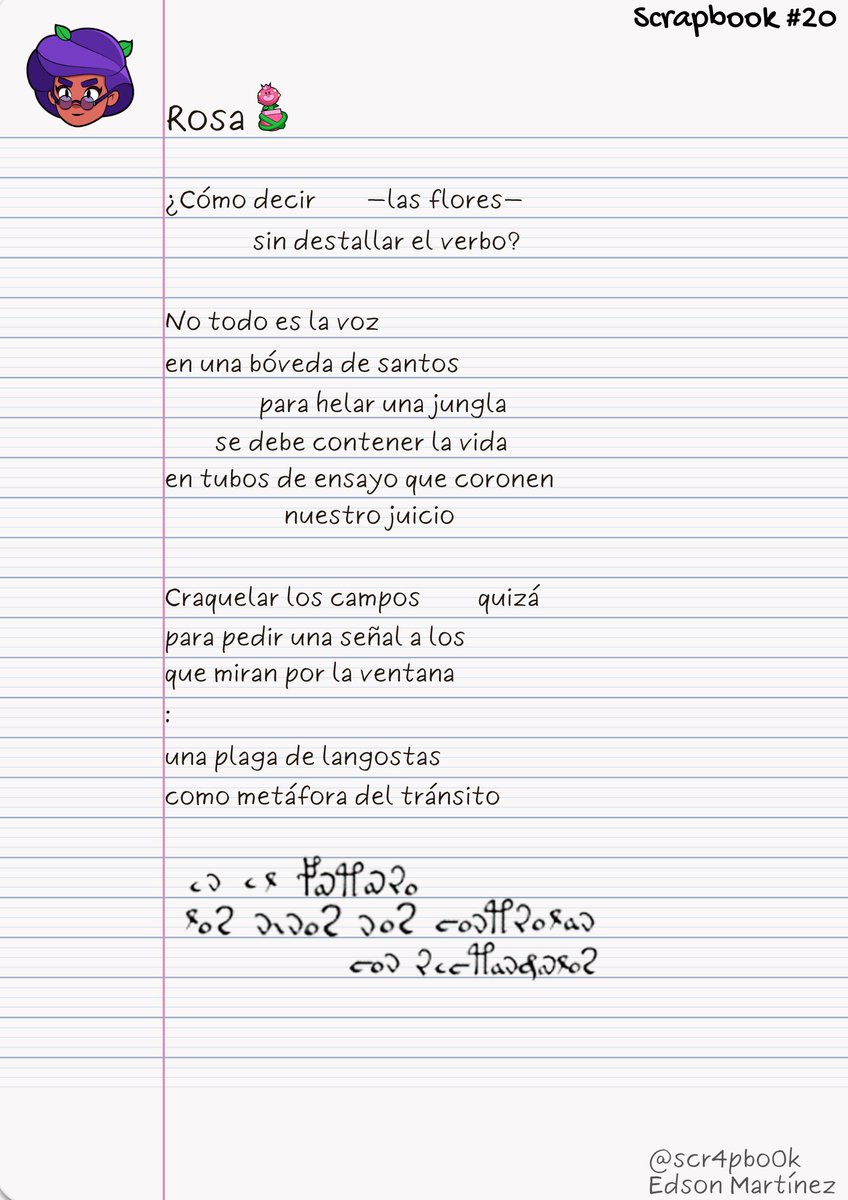 Scrapbook #20
Rosa
¿Cómo decir —las flores—
sin destallar el verbo?
No todo es la voz
en una bóveda de santos
para helar una jungla
se debe contener la vida
en tubos de ensayo que coronen
nuestro juicio
Craquelar los campos quizá
para pedir una señal a los
que miran por la ventana
:
una plaga de langostas
como metáfora del tránsito
@scr4pbo0k
Edson Martínez